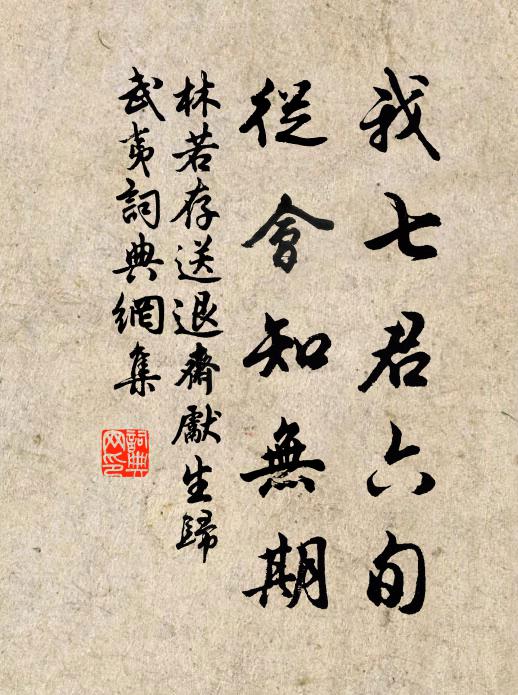 我七君六旬
從會知無期
林若存送退齋獻生歸
武夷詞典網集
詞典網印